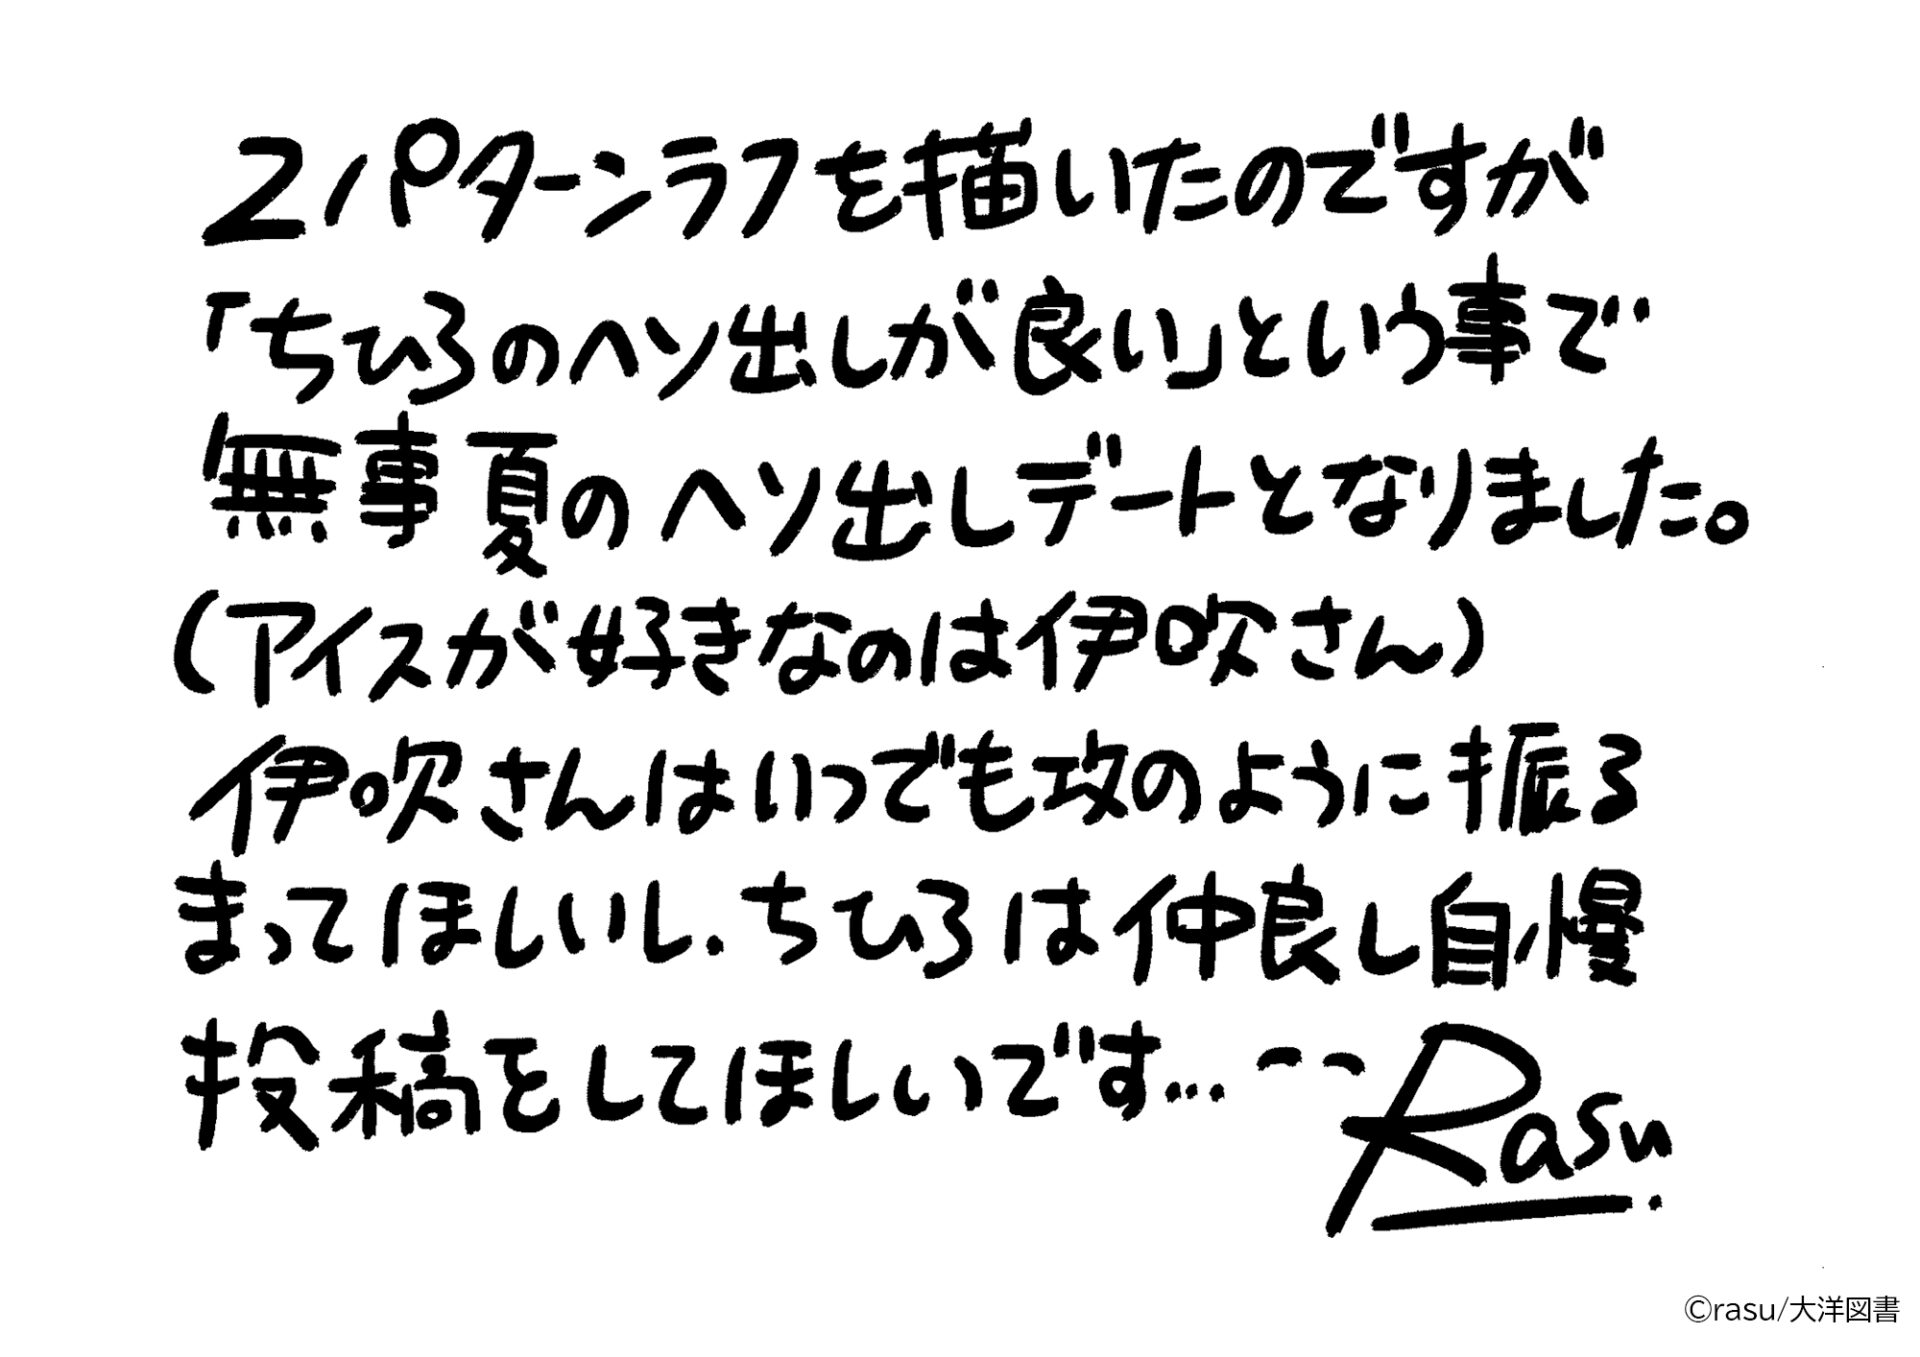 2パターンラフを描いたのですが
「ちひろのヘソ出しが良い」という事で
無事夏のヘソ出しデートとなりました。
(アイスが好きなのは伊吹さん)
伊吹さんはいつでも攻のように振る
まってほしいし、ちひろは仲良し自慢
投稿をしてほしいです…
Rasu.
©rasu/大洋図書